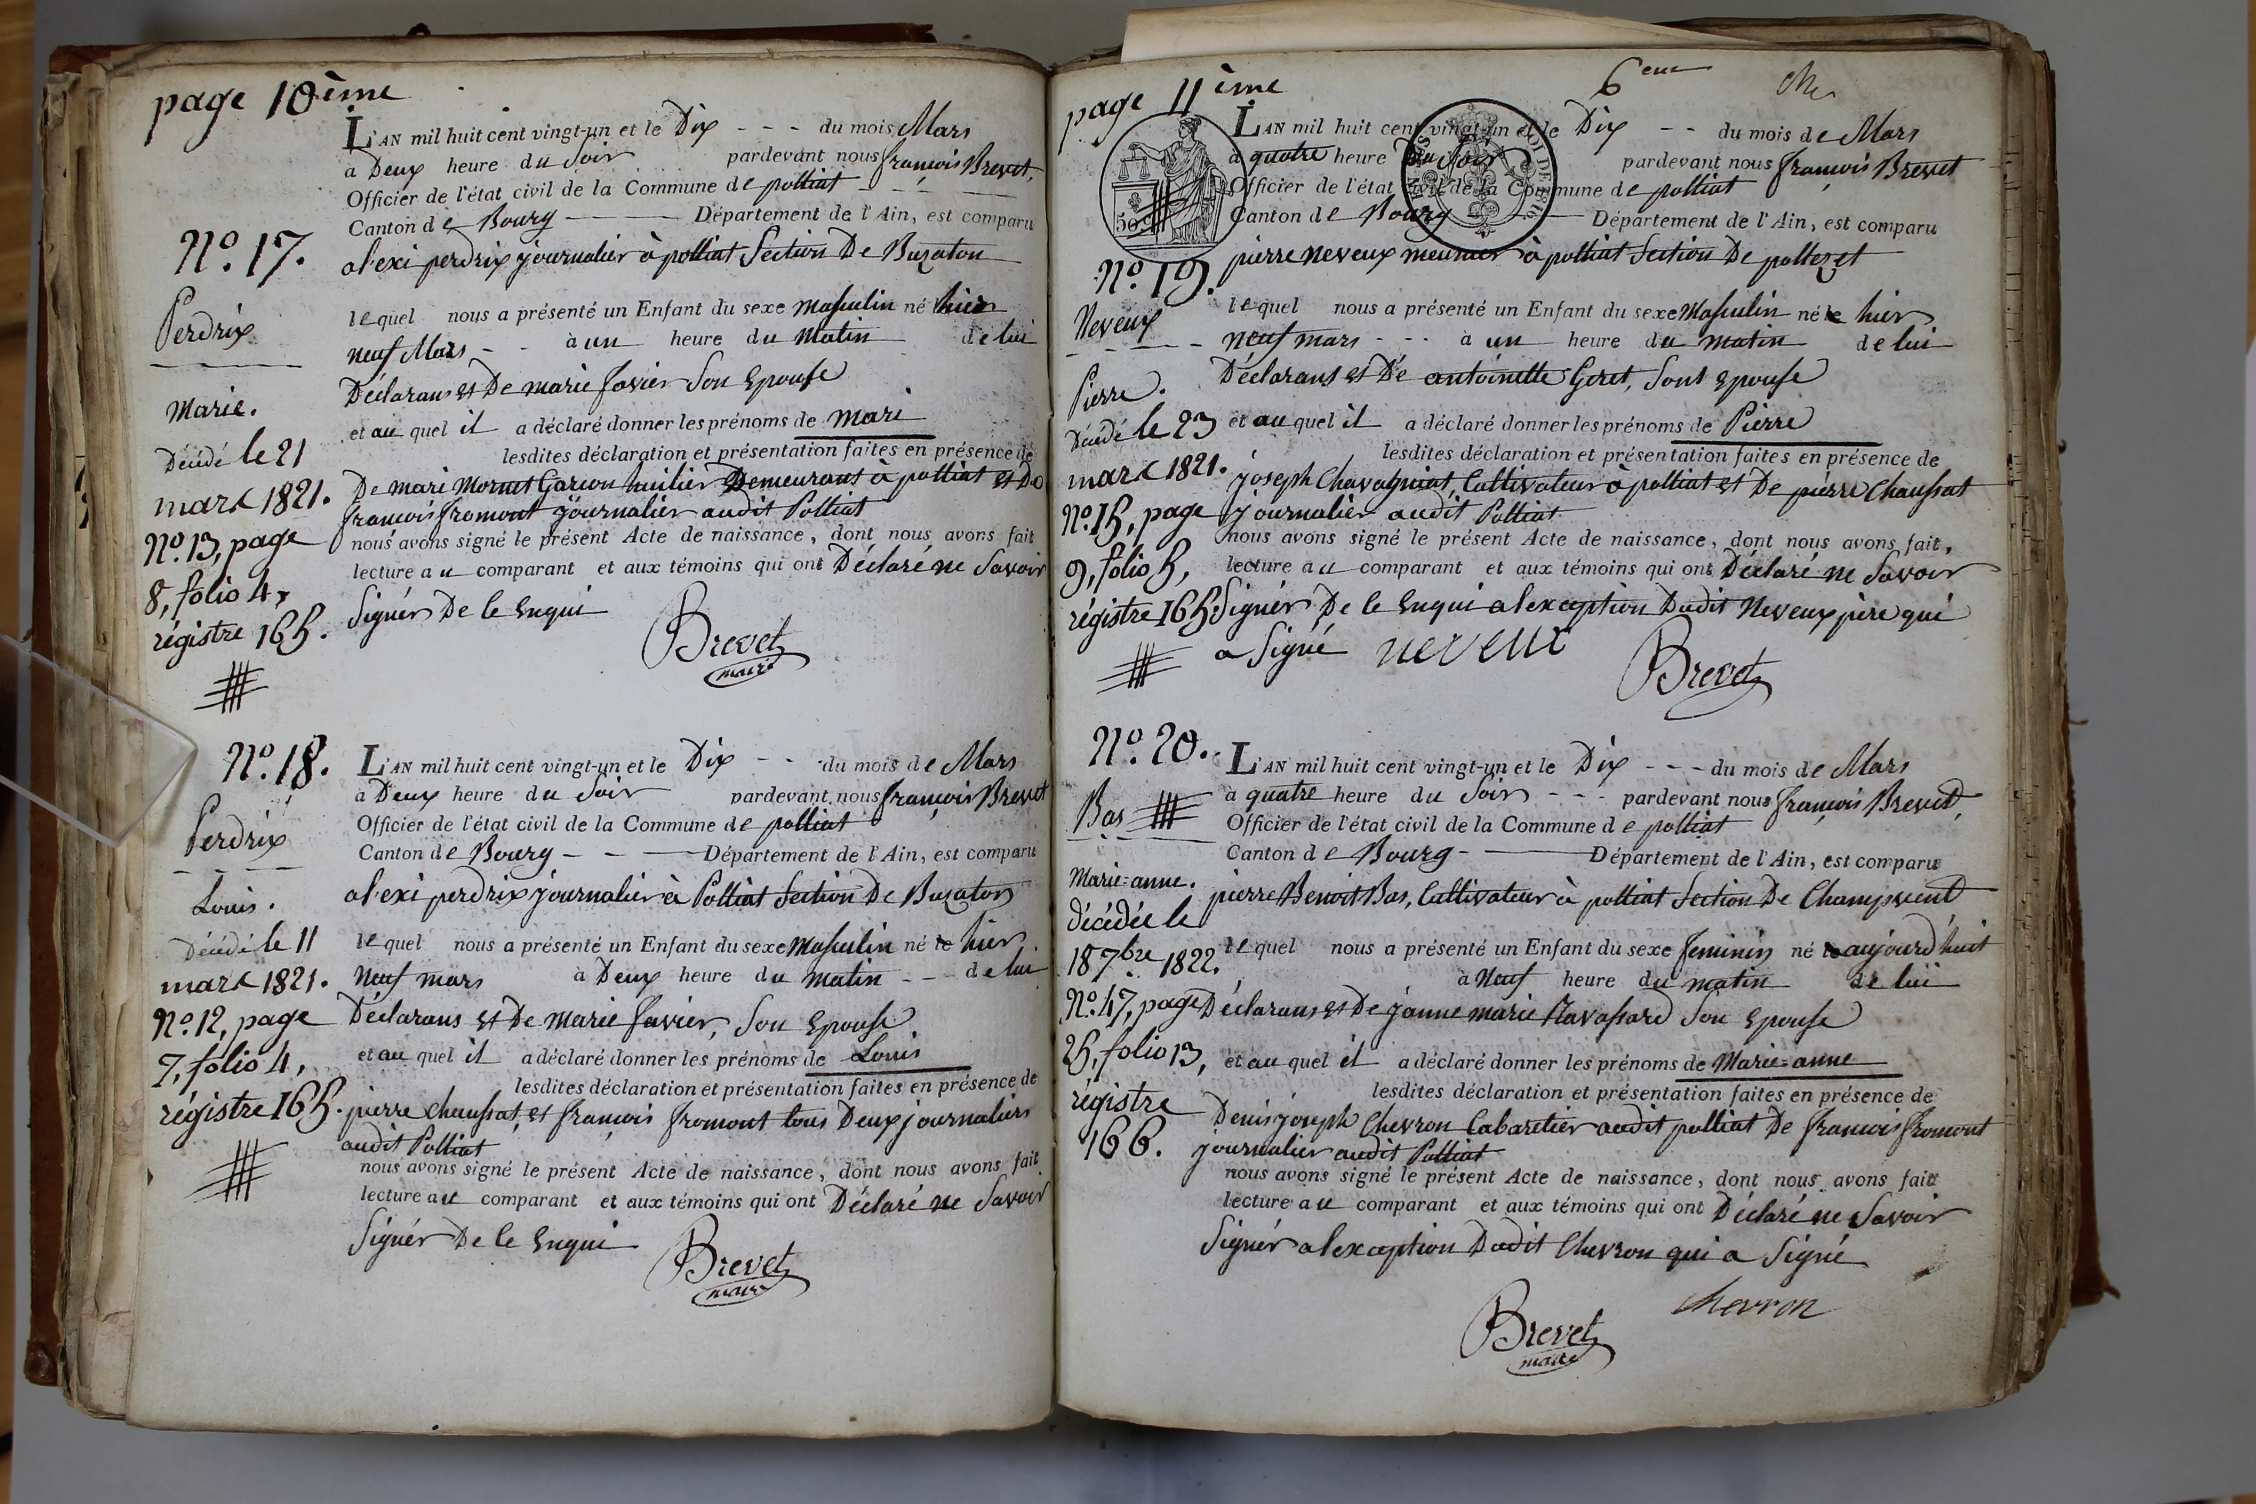 page 10ème
L'AN mil huit cent vingt-un et le Dix - - - du mois Mars
à Deux heure du Soir pardevant nous françois Brevet,
Officier de l'état civil de la Commune de polliat
Canton de Bourg Département de l'Ain, est comparu
No. 17.
alexi perdrix journalier à polliat Section De Buzaton
Perdrix
lequel nous a présenté un Enfant du sexe Masculin né hier
neuf Mars - - à un heure du Matin de lui
Marie.
Déclarans et De marie favier Son Epouse
et au quel il a déclaré donner les prénoms de mari
Décédé le 21
lesdites déclaration et présentation faites en présence de
mars 1821.
De mari Mornet Garcon huilier Demeurant à polliat et De
françois fromont journalier audit Polliat
No. 13, page
nous avons signé le présent Acte de naissance, dont nous avons fait
8, folio 4,
lecture au comparant et aux témoins qui ont Déclaré ne Savoir
régistre 165.
Signér De le Enqui
Brevet
maire
No. 18.
L'AN mil huit cent vingt-un et le Dix - - - du mois de Mars
à Deux heure du Soir pardevant nous françois Brevet
Officier de l'état civil de la Commune de polliat
Perdrix
Canton de Bourg - - Département de l'Ain, est comparu
Louis.
alexi perdrix journalier à Polliat Section De Buzaton
Décédé le 11
lequel nous a présenté un Enfant du sexe Masculin né le hier
mars 1821.
Neuf mars à Deux heure du matin - de lui
No. 12, page
Déclarans et De Marie favier, Son Epouse
7, folio 4,
et au quel il a déclaré donner les prénoms de Louis
lesdites déclaration et présentation faites en présence de
régistre 165.
pierre chaussat, et françois fromont tous Deux journaliers
audit Polliat
nous avons signé le présent Acte de naissance, dont nous avons fait
lecture au comparant et aux témoins qui ont Déclaré ne Savoir
Signér De le Enqui
Brevet
maire
page 11ème
6eme
L'AN mil huit cent vingt-un et le Dix - - du mois de Mars
à quatre heure Du Soir pardevant nous françois Brevet
Officier de l'état civil de la Commune de polliat
Canton de Bourg Département de l'Ain, est comparu
50c
No. 19.
pierre Neveux meunier à polliat Section De polteret
Neveux
lequel nous a présenté un Enfant du sexe Masculin né le hier
neuf mars - - - à un heure du matin de lui
Pierre.
Déclarans et De antoinette Geret, Sont Epouse
Décédé le 23
et au quel il a déclaré donner les prénoms de Pierre
lesdites déclaration et présentation faites en présence de
mars 1821.
joseph Chavagniat, Cultivateur à polliat et De pierre Chaussat
No. 15, page
journalier audit Polliat
nous avons signé le présent Acte de naissance, dont nous avons fait,
9, folio 5,
lecture au comparant et aux témoins qui ont Déclaré ne Savoir
régistre 165.
Signér De le Enqui a lexception Dudit Neveux père qui
a Signé neveux
Brevet
No. 20.
L'AN mil huit cent vingt-un et le Dix - - - du mois de Mars
à quatre heure du Soir - - pardevant nous françois Brevet,
Bas
Officier de l'état civil de la Commune de polliat
Canton de Bourg - Département de l'Ain, est comparu
Marie=anne.
pierre Benoit Bas, Cultivateur à polliat Section De Champvent
décédée le
18 7bre 1822.
lequel nous a présenté un Enfant du sexe feminin né le aujourd'huit
à Neuf heure du matin de lui
No. 47, page
Déclarans et De janne marie Ravassard Son Epouse
25, folio 13,
et au quel il a déclaré donner les prénoms de Marie=anne
lesdites déclaration et présentation faites en présence de
régistre
Denis joseph Chevron Cabaretier audit polliat De françois fromont
166.
journalier audit Polliat
nous avons signé le présent Acte de naissance, dont nous avons fait
lecture au comparant et aux témoins qui ont Déclaré ne Savoir
Signér a lexception Dudit Chevron qui a Signé
chevron
Brevet
maire